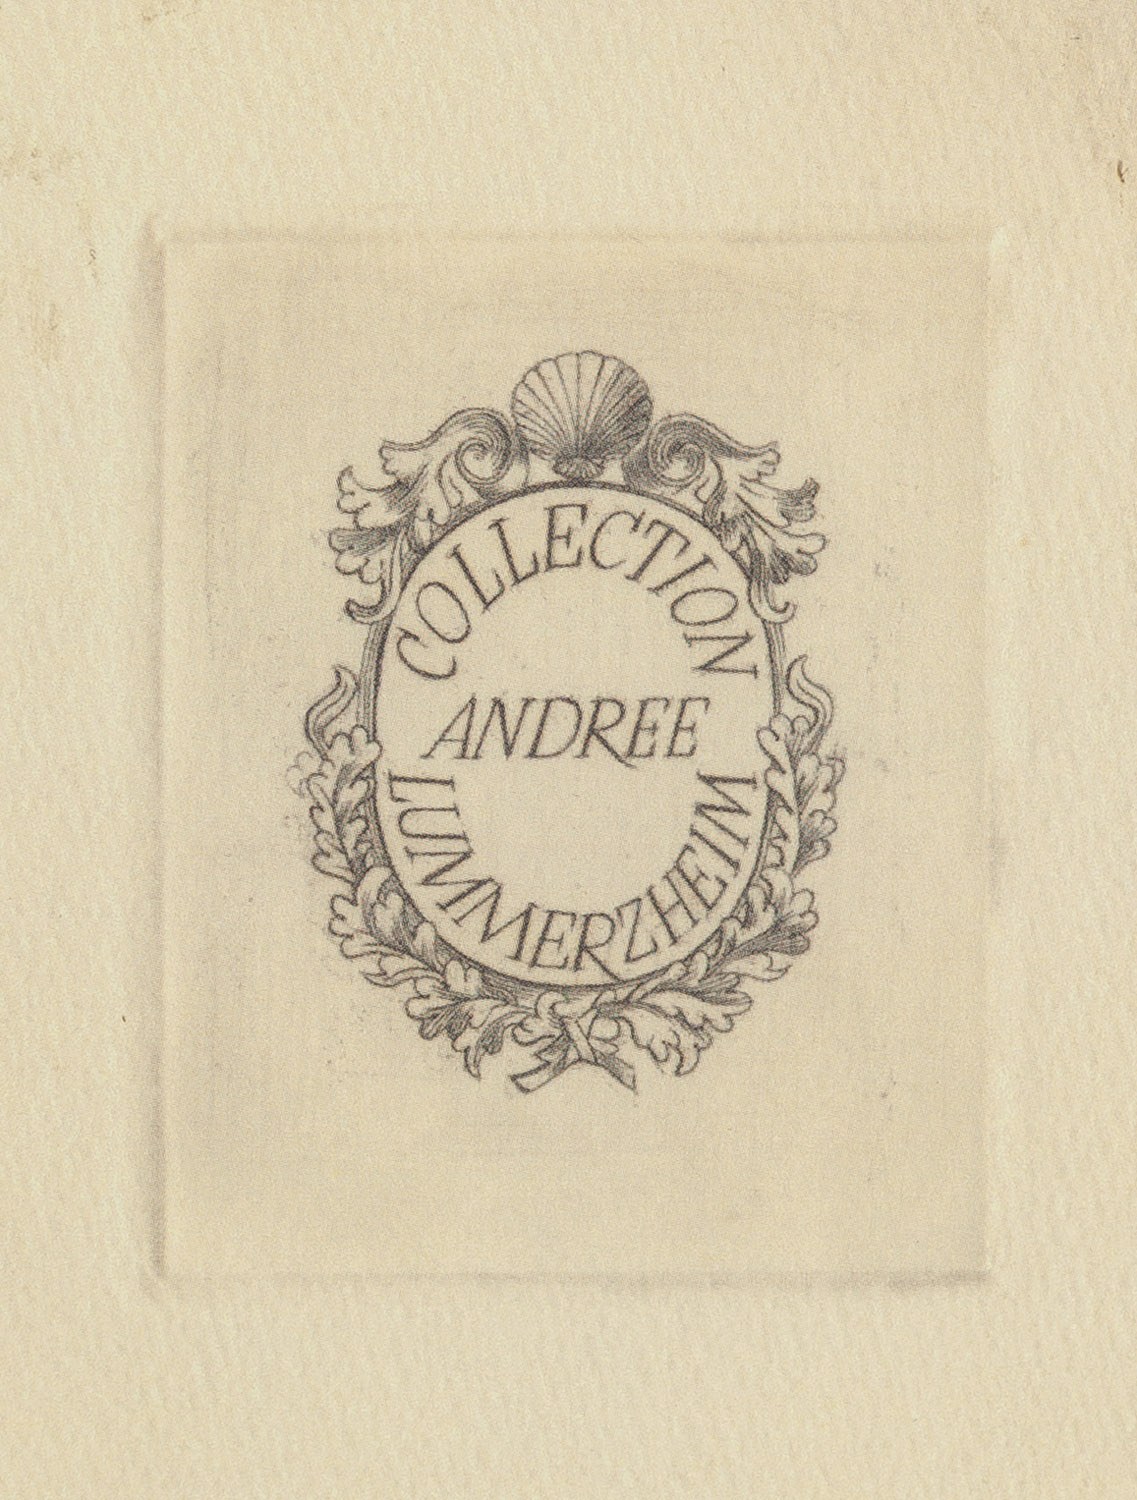 COLLECTION
ANDREE
LUMMERZHEIM